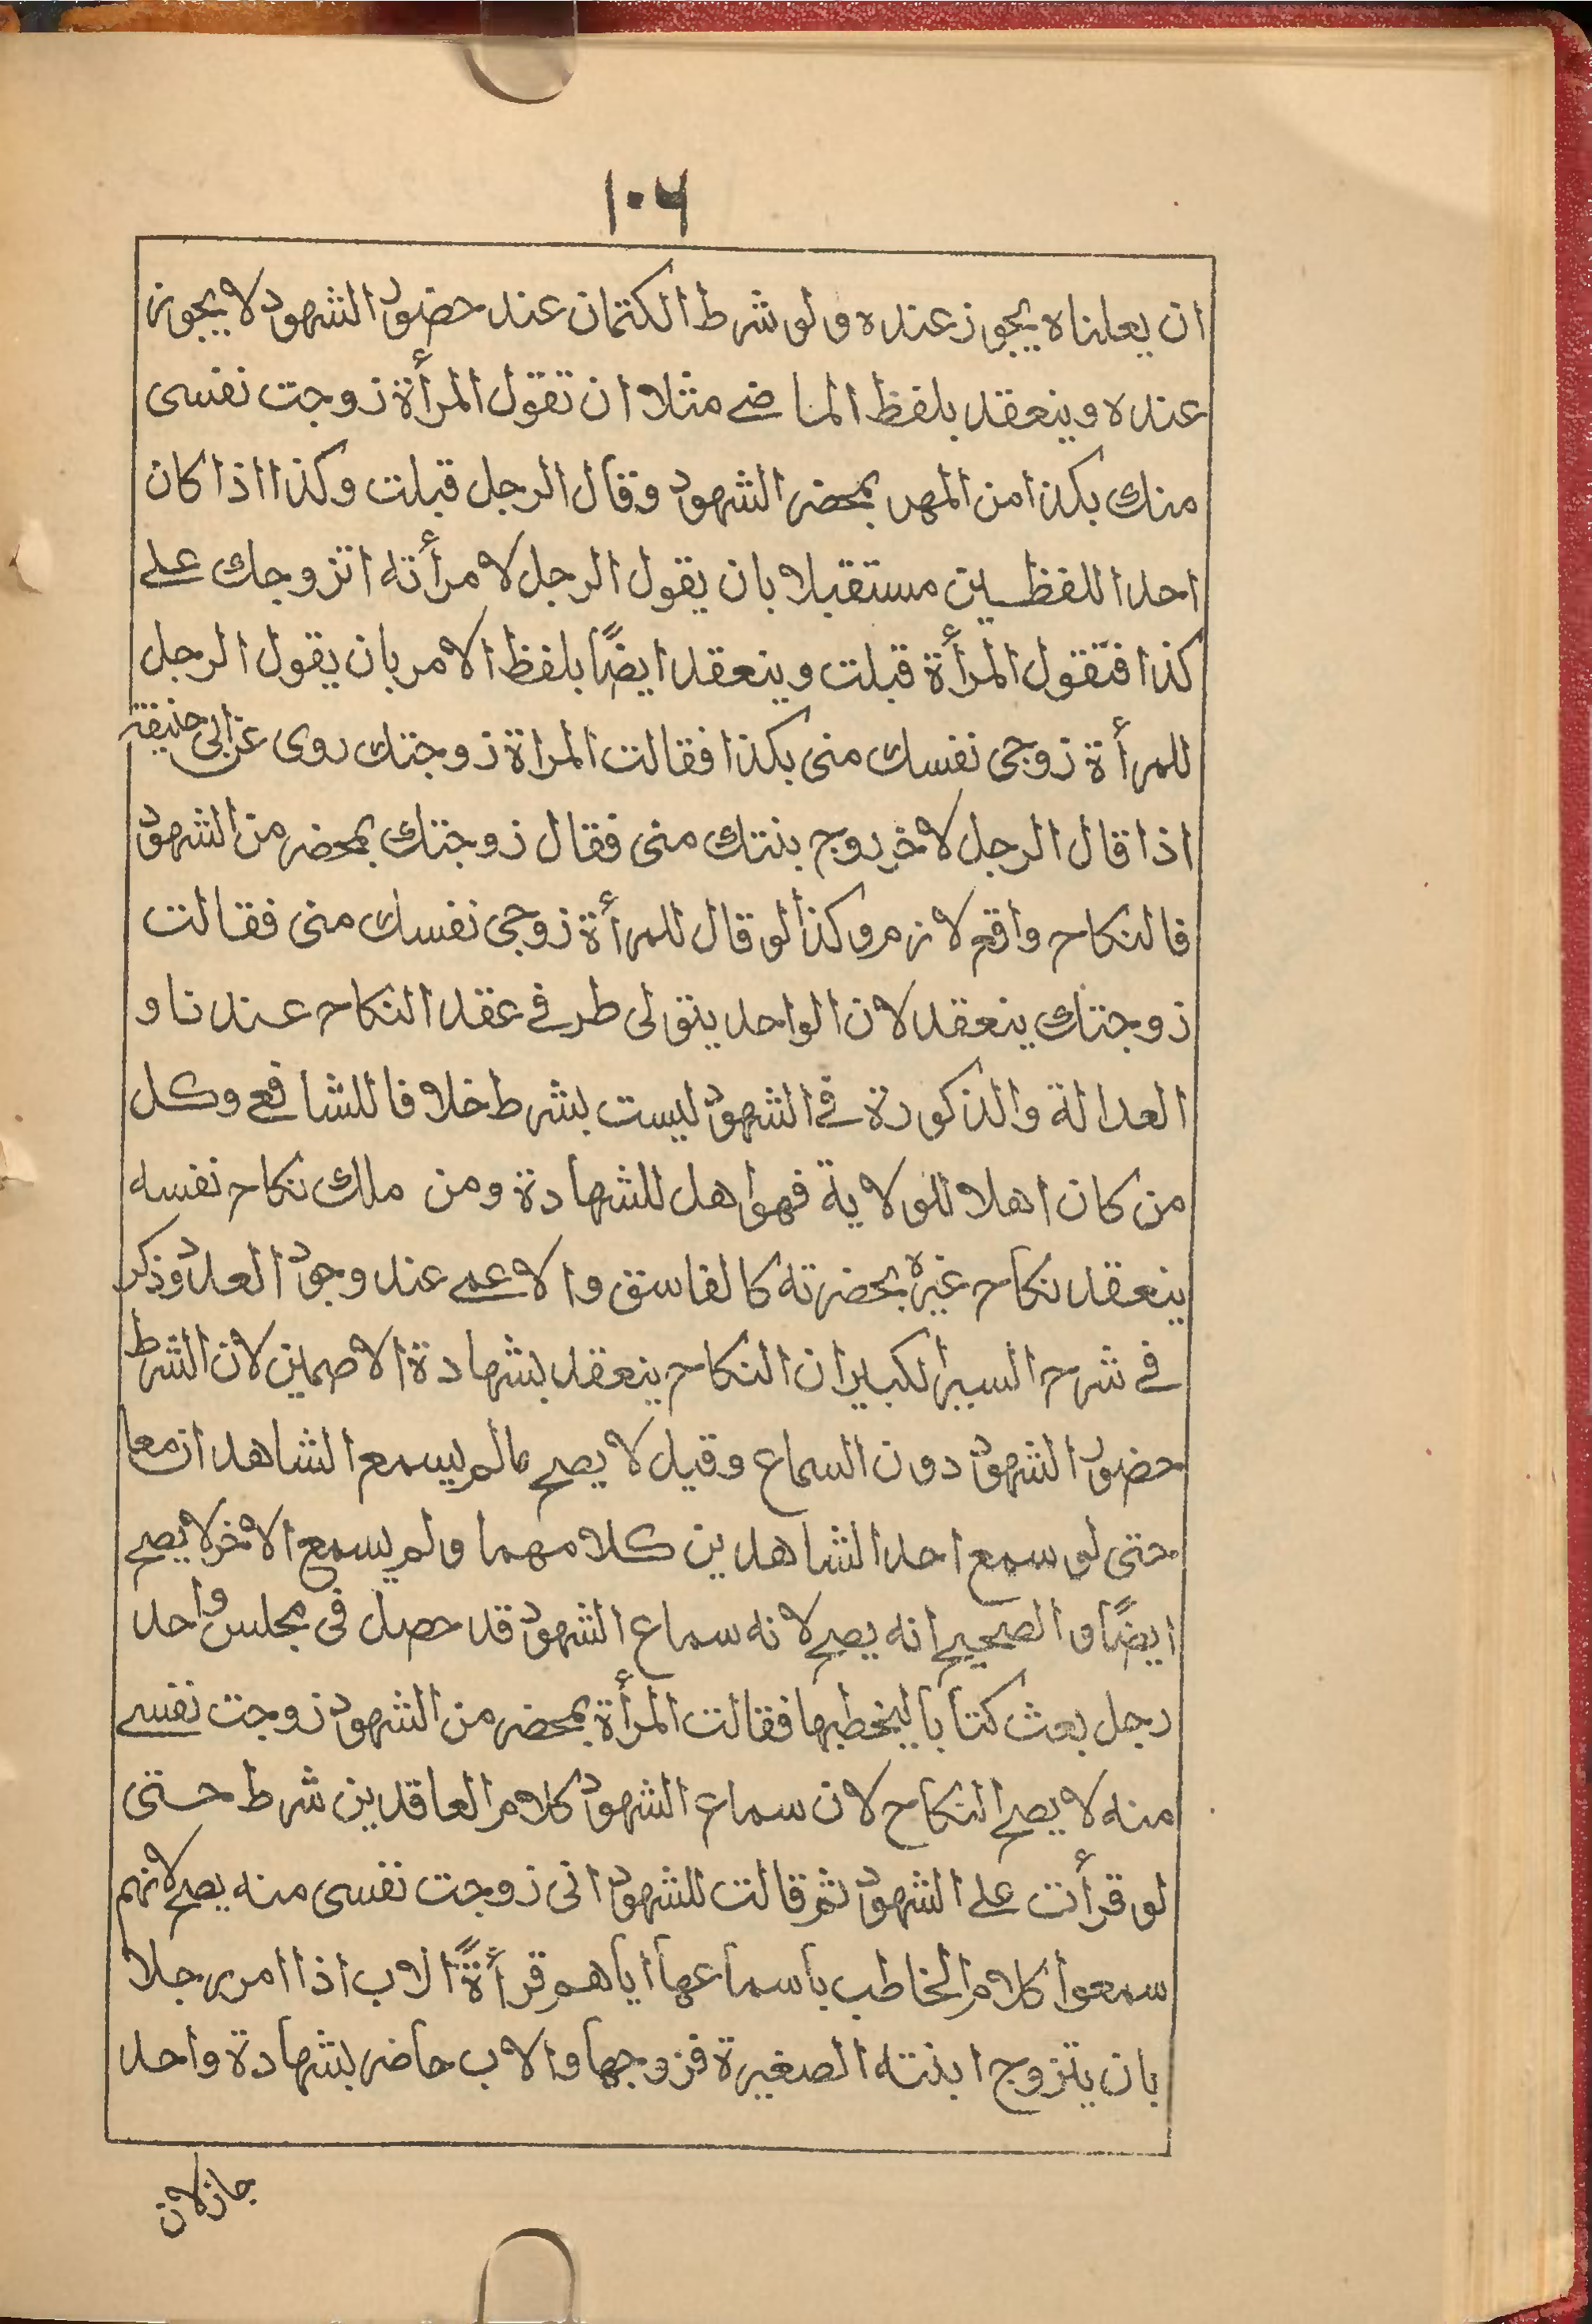 ١٠٦
ان يعلناه يجوز عنده ولو شرط الكتمان عند حضور الشهود لا يجوز
عنده وينعقد بلفظ الماضے مثلا ان تقول المرأة زوجت نفسى
منك بكذا من المهر بمحضر الشهود وقال الرجل قبلت وكذا اذا كان
احد اللفظين مستقبلا بان يقول الرجل لامرأته اتزوجك علے
كذا فتقول المرأة قبلت وينعقد ايضًا بلفظ الامر بان يقول الرجل
للمرأة زوجى نفسك منى بكذا فقالت المراة زوجتك روى عن ابى حنيفة
اذا قال الرجل لاخر زوج بنتك منى فقال زوجتك بمحضر من الشهود
فالنكاح واقع لازم وكذا لو قال للمرأة زوجى نفسك منى فقالت
زوجتك ينعقد لان الواحد يتولى طرفے عقد النكاح عندنا و
العدالة والذكورة فے الشهود ليست بشرط خلافا للشافعے وكل
من كان اهلا للولاية فهو اهل للشهادة ومن ملك نكاح نفسه
ينعقد نكاح غيره بحضرته كالفاسق والاعمے عند وجود العدد وذكر
فے شرح السير الكبير ان النكاح ينعقد بشهادة الاصمين لان الشرط
حضور الشهود دون السماع وقيل لا يصح مالم يسمع الشاهدان معا
حتى لو سمع احد الشاهدين كلامهما ولم يسمع الاخر لا يصح
ايضًا والصحيح انه يصح لانه سماع الشهود قد حصل فى مجلس واحد
رجل بعث كتابا ليخطبها فقالت المرأة بمحضر من الشهود زوجت نفسے
منه لا يصح النكاح لان سماع الشهود كلام العاقدين شرط حتى
لو قرأت علے الشهود ثم قالت للشهود انى زوجت نفسى منه يصح لانهم
سمعوا كلام الخاطب باسماعها اياهم قرأةً الاب اذا امر رجلا
بان يتزوج ابنته الصغيرة فزوجها والاب حاضر بشهادة واحد
جاز لان